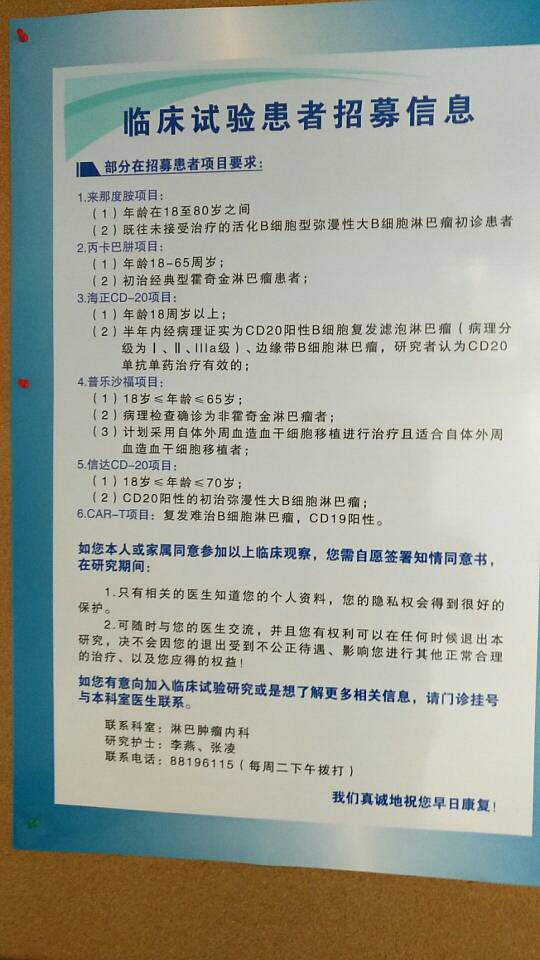 临床试验患者招募信息
部分在招募患者项目要求:
1.来那度胺项目:
(1)年龄在18至80岁之间
(2)既往未接受治疗的活化B细胞型弥漫性大B细胞淋巴瘤初诊患者
2.丙卡巴肼项目:
(1)年龄18-65周岁;
(2)初治经典型霍奇金淋巴瘤患者;
3.海正CD-20项目:
(1)年龄18周岁以上;
(2)半年内经病理证实为CD20阳性B细胞复发滤泡淋巴瘤(病理分
级为Ⅰ、Ⅱ、IIIa级)、边缘带B细胞淋巴瘤,研究者认为CD20
单抗单药治疗有效的;
4.普乐沙福项目:
(1)18岁≤年龄≤65岁;
(2)病理检查确诊为非霍奇金淋巴瘤者;
(3)计划采用自体外周血造血干细胞移植进行治疗且适合自体外周
血造血干细胞移植者;
5.信达CD-20项目:
(1)18岁≤年龄≤70岁;
(2)CD20阳性的初治弥漫性大B细胞淋巴瘤;
6.CAR-T项目:复发难治B细胞淋巴瘤,CD19阳性。
如您本人或家属同意参加以上临床观察,您需自愿签署知情同意书,
在研究期间:
1.只有相关的医生知道您的个人资料,您的隐私权会得到很好的
保护。
2.可随时与您的医生交流,并且您有权利可以在任何时候退出本
研究,决不会因您的退出受到不公正待遇、影响您进行其他正常合理
的治疗、以及您应得的权益!
如您有意向加入临床试验研究或是想了解更多相关信息,请门诊挂号
与本科室医生联系。
联系科室:淋巴肿瘤内科
研究护士:李燕、张凌
联系电话:88196115(每周二下午拨打)
我们真诚地祝您早日康复!